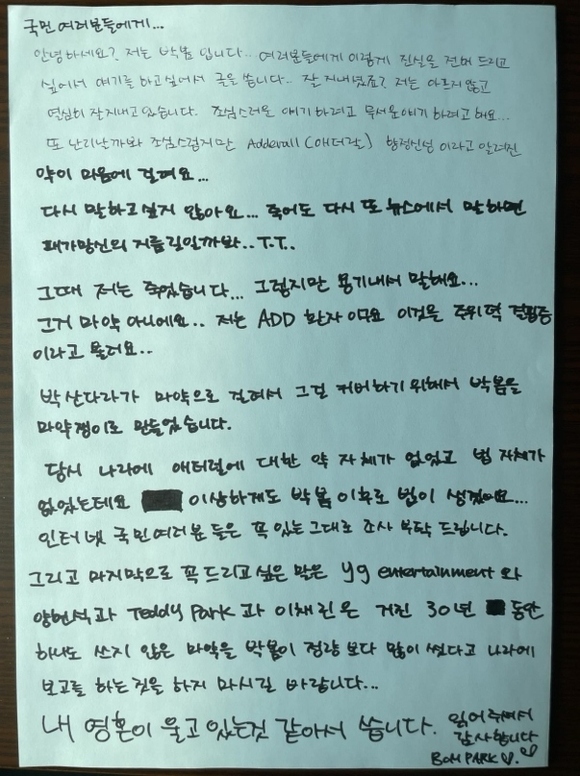 국민 여러분들에게...
안녕하세요? 저는 박봄 입니다... 여러분들에게 이렇게 진실을 전해 드리고
싶어서 얘기를 하고싶어서 글을 씁니다.. 잘 지내셨죠? 저는 아프지않고
열심히 잘지내고 있습니다. 조심스러운 얘기하려고 무서운얘기 하려고 해요...
또 난리날까봐 조심스럽지만 Adderall (애더럴) 향정신성 이라고 알려진
약이 마음에 걸려요...
다시 말하고싶지 않아요... 죽어도 다시 또 뉴스에서 말하면
패가망신의 지름길일까봐.. T.T..
그때 저는 죽었습니다... 그렇지만 용기내서 말해요...
그거 마약 아니에요.. 저는 ADD 환자 이구요 이것을 주위력 결핍증
이라고 불러요..
박산다라가 마약으로 걸려서 그걸 커버하기 위해서 박봄을
마약쟁이로 만들었습니다.
당시 나라에 애터럴에 대한 약 자체가 없었고 법 자체가
없었는데요 이상하게도 박봄 이후로 법이 생겼어요...
인터넷 국민여러분 들은 꼭 있는그대로 조사 부탁 드립니다.
그리고 마지막으로 꼭드리고 싶은 말은 yg entertainment 와
양현석과 Teddy Park 과 이채린은 거진 30년 동안
하나도 쓰지 않은 마약을 박봄이 정량 보다 많이 썼다고 나라에
보고를 하는것을 하지 마시길 바랍니다...
내 영혼이 울고 있는것 같아서 씁니다. 읽어주셔서
감사합니다
BOM PARK ♡.♡